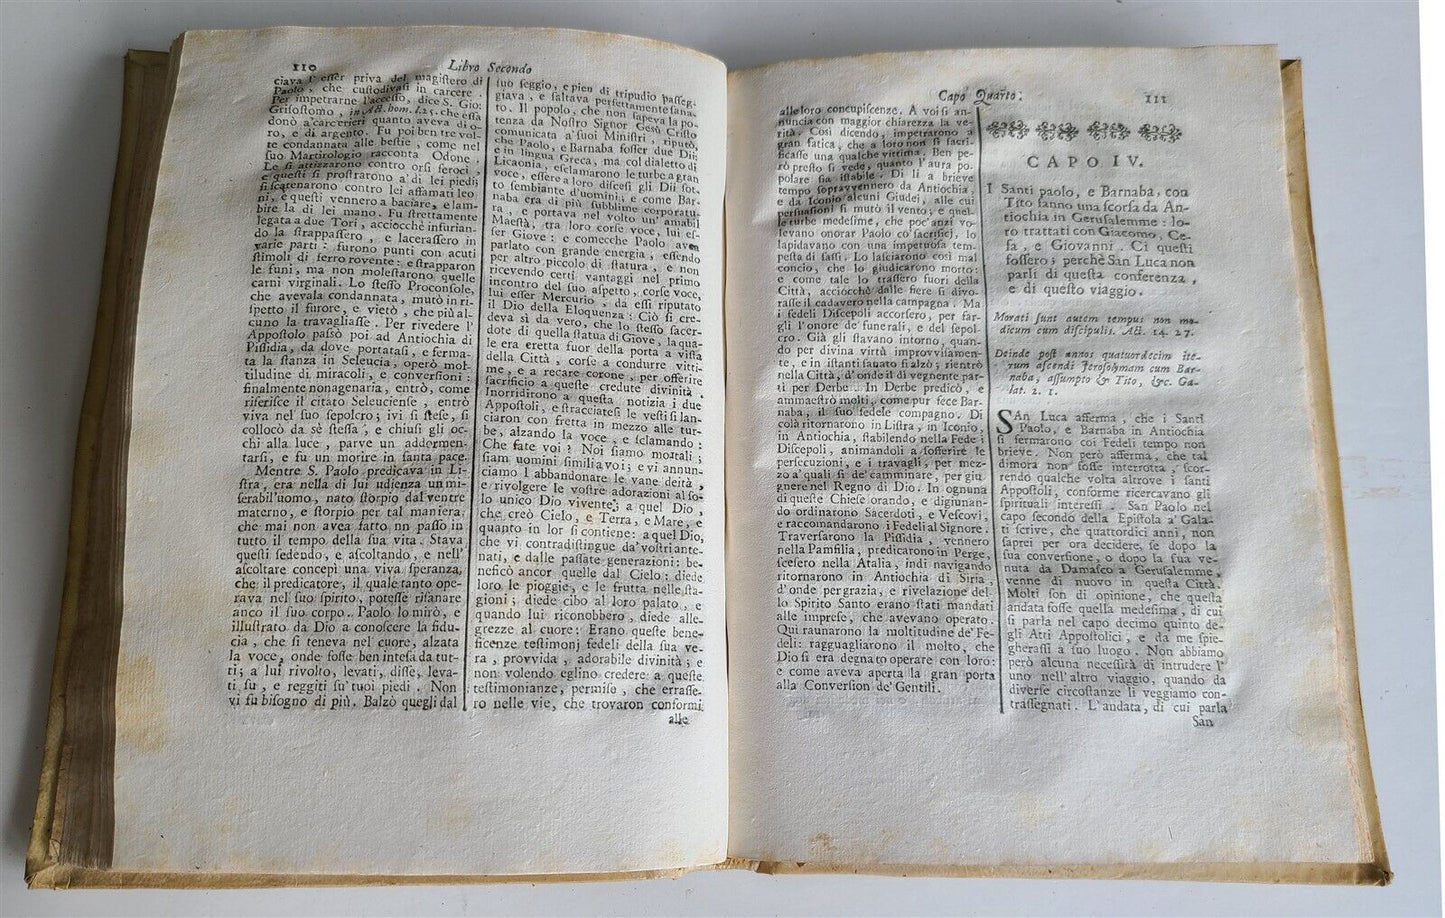 110
Libro Secondo
ciava l' esser priva del magistero di
Paolo, che custodivasi in carcere.
Per impetrarne l'accesso, dice S. Gio:
Grisostomo, in Act. hom. l. 25. che essa
donò a'carcerieri quanto aveva di o-
ro, e di argento. Fu poi ben tre vol-
te condannata alle bestie, come nel
suo Martirologio racconta Odone.
Le si attizzarono contro orsi feroci,
e questi si prostrarono a' di lei piedi;
si scatenarono contro lei affamati leo-
ni, e questi vennero a baciare, e lam-
bire la di lei mano. Fu strettamente
legata a due Tori, acciocchè infurian-
do la strappassero, e lacerassero in
varie parti: furono punti con acuti
stimoli di ferro rovente: e strapparon
le funi, ma non molestarono quelle
carni virginali. Lo stesso Proconsole,
che avevala condannata, mutò in ri-
spetto il furore, e vietò, che più al-
cuno la travagliasse. Per rivedere l'
Appostolo passò poi ad Antiochia di
Pissidia, da dove portatasi, e ferma-
ta la stanza in Seleucia, operò mol-
titudine di miracoli, e conversioni:
finalmente nonagenaria, entrò, come
riferisce il citato Seleuciense, entrò
viva nel suo sepolcro; ivi si stese, si
collocò da sè stessa, e chiusi gli oc-
chi alla luce, parve un addormen-
tarsi, e fu un morire in santa pace.
Mentre S. Paolo predicava in Li-
stra, era nella di lui udienza un mi-
serabil'uomo, nato storpio dal ventre
materno, e storpio per tal maniera,
che mai non avea fatto nn passo in
tutto il tempo della sua vita. Stava
questi sedendo, e ascoltando, e nell'
ascoltare concepì una viva speranza,
che il predicatore, il quale tanto ope-
rava nel suo spirito, potesse risanare
anco il suo corpo. Paolo lo mirò, e
illustrato da Dio a conoscere la fidu-
cia, che si teneva nel cuore, alzata
la voce, onde fosse ben intesa da tut-
ti; a lui rivolto, levati, disse, leva-
ti su, e reggiti su' tuoi piedi. Non
vi fu bisogno di più. Balzò quegli dal
suo seggio, e pien di tripudio passeg-
giava, e saltava perfettamente sana-
to. Il popolo, che non sapeva la po-
tenza da Nostro Signor Gesù Cristo
comunicata a'suoi Ministri, riputò,
che Paolo, e Barnaba fosser due Dii;
e in lingua Greca, ma col dialetto di
Licaonia, esclamarono le turbe a gran
voce, essere a loro discesi gli Dii sot-
to sembiante d'uomini; e come Bar-
naba era di più subblime corporatu-
ra, e portava nel volto un' amabil
Maestà, tra loro corse voce, lui es-
ser Giove: e comecche Paolo aven
parlato con grande energia, essendo
per altro piccolo di statura, e non
ricevendo certi vantaggi nel primo
incontro del suo aspetto, corse voce,
lui esser Mercurio, da essi riputato
il Dio della Eloquenza: Ciò si cre-
deva sì da vero, che lo stesso sacer-
dote di quella statua di Giove, la qua-
le era eretta fuor della porta a vista
della Città, corse a condurre vitti-
me, e a recare corone, per offerire
sacrificio a queste credute divinità.
Inorridirono a questa notizia i due
Appostoli, e stracciatesi le vesti si lan-
ciaron con fretta in mezzo alle tur-
be, alzando la voce, e sclamando:
Che fate voi? Noi siamo mortali;
siam uomini simili a voi; e vi annun-
ciamo l'abbandonare le vane deità,
e rivolgere le vostre adorazioni al so-
lo unico Dio vivente; a quel Dio,
che creò Cielo, e Terra, e Mare, e
quanto in lor si contiene: a quel Dio,
che vi contradistingue da'voltri ante-
nati, e dalle passate generazioni: be-
neficò ancor quelle dal Cielo: diede
loro le pioggie, e le frutta nelle sta-
gioni; diede cibo al loro palato, e
quando lui riconobbero, diede alle-
grezze al cuore: Erano queste bene-
ficenze testimonj fedeli della sua ve-
ra, provvida, adorabile divinità; e
non volendo eglino credere a queste
testimonianze, permise, che errasse-
ro nelle vie, che trovaron conformi
alle
Capo Quarto.
111
alle loro concupiscenze. A voi si an-
nuncia con maggior chiarezza la ve-
rità. Così dicendo, impetrarono a
gran fatica, che a loro non si sacri-
ficasse una qualche vittima. Ben pe-
rò presto si vede, quanto l'aura po-
polare sia istabile. Di lì a brieve
tempo sopravvennero da Antiochia,
e da Iconio alcuni Giudei, alle cui
persuasioni si mutò il vento; e quel-
le turbe medesime, che poc'anzi vo-
levano onorar Paolo co'sacrificj, lo
lapidavano con una impetuosa tem-
pesta di sassi. Lo lasciarono così mal
concio, che lo giudicarono morto:
e come tale lo trassero fuori della
Città, acciocchè dalle fiere si divo-
rasse il cadavero nella campagna. Ma
i fedeli Discepoli accorsero, per far-
gli l'onore de' funerali, e del sepol-
cro. Già gli stavano intorno, quan-
do per divina virtù improvvisamen-
te, e in istanti sanato si alzò; rientrò
nella Città, d'onde il dì vegnente par-
tì per Derbe. In Derbe predicò, e
ammaestrò molti, come pur fece Bar-
naba, il suo fedele compagno. Di
colà ritornarono in Listra, in Iconio,
in Antiochia, stabilendo nella Fede i
Discepoli, animandoli a sofferire le
persecuzioni, e i travagli, per mez-
zo a'quali si de' camminare, per giu-
gnere nel Regno di Dio. In ognuna
di queste Chiese orando, e digiunan-
do ordinarono Sacerdoti, e Vescovi,
e raccomandarono i Fedeli al Signore.
Traversarono la Pissidia, vennero
nella Pamfilia, predicarono in Perge,
scesero nella Atalia, indi navigando
ritornarono in Antiochia di Siria,
d'onde per grazia, e rivelazione del-
lo Spirito Santo erano stati mandati
alle imprese, che avevano operato.
Qui raunarono la moltitudine de' Fe-
deli: ragguagliarono il molto, che
Dio si era degnato operare con loro:
e come aveva aperta la gran porta
alla Conversion de' Gentili.
CAPO IV.
I Santi paolo, e Barnaba, con
Tito fanno una scorsa da An-
tiochia in Gerusalemme: lo-
ro trattati con Giacomo, Ce-
fa, e Giovanni. Ci questi
fossero; perchè San Luca non
parli di questa conferenza,
e di questo viaggio.
Morati sunt autem tempus non mo-
dicum cum discipulis. Act. 14. 27.
Deinde post annos quatuordecim ite-
rum ascendi Jerosolymam cum Bar-
naba, assumpto & Tito, &c. Ga-
lat. 2. 1.
SAn Luca asserma, che i Santi
Paolo, e Barnaba in Antiochia
si fermarono coi Fedeli tempo non
brieve. Non però afferma, che tal
dimora non fosse interrotta, scor-
rendo qualche volta altrove i santi
Appostoli, conforme ricercavano gli
spirituali interessi. San Paolo nel
capo secondo della Epistola a' Gala-
ti scrive, che quattordici anni, non
saprei per ora decidere, se dopo la
sua conversione, o dopo la sua ve-
nuta da Damasco a Gerusalemme,
venne di nuovo in questa Città.
Molti son di opinione, che questa
andata fosse quella medesima, di cui
si parla nel capo decimo quinto de-
gli Atti Appostolici, e da me spie-
gherassi a suo luogo. Non abbiamo
però alcuna necessità di intruder l'
uno nell'altro viaggio, quando da
diverse circostanze li veggiamo con-
trassegnati. L'andata, di cui parla
San